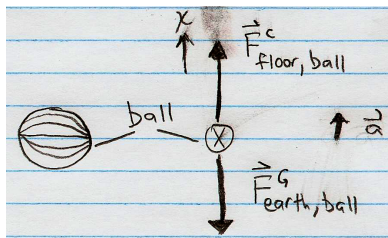 x
F^c floor, ball
ball
x
a
F^G earth, ball